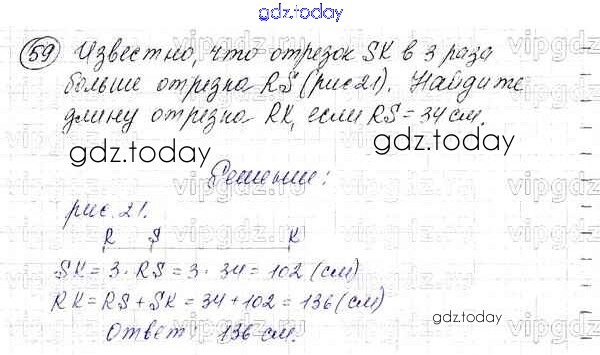 gdz.today
59 Известно, что отрезок SK в 3 раза
больше отрезка RS (рис 21). Найдите
длину отрезка RK, если RS = 34 см.
gdz.today gdz.today
Решение:
рис. 21.
R S K
SK = 3 · RS = 3 · 34 = 102 (см)
RK = RS + SK = 34 + 102 = 136 (см)
gdz.today
Ответ: 136 см.